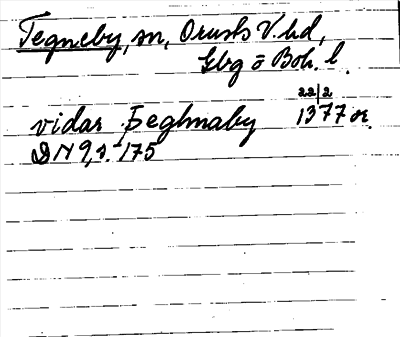 Tegneby, sn, Orusts V. hd,
Gbg o Boh. l.
22/2
vidar Þeghnaby 1377 or.
DN 9, s. 175